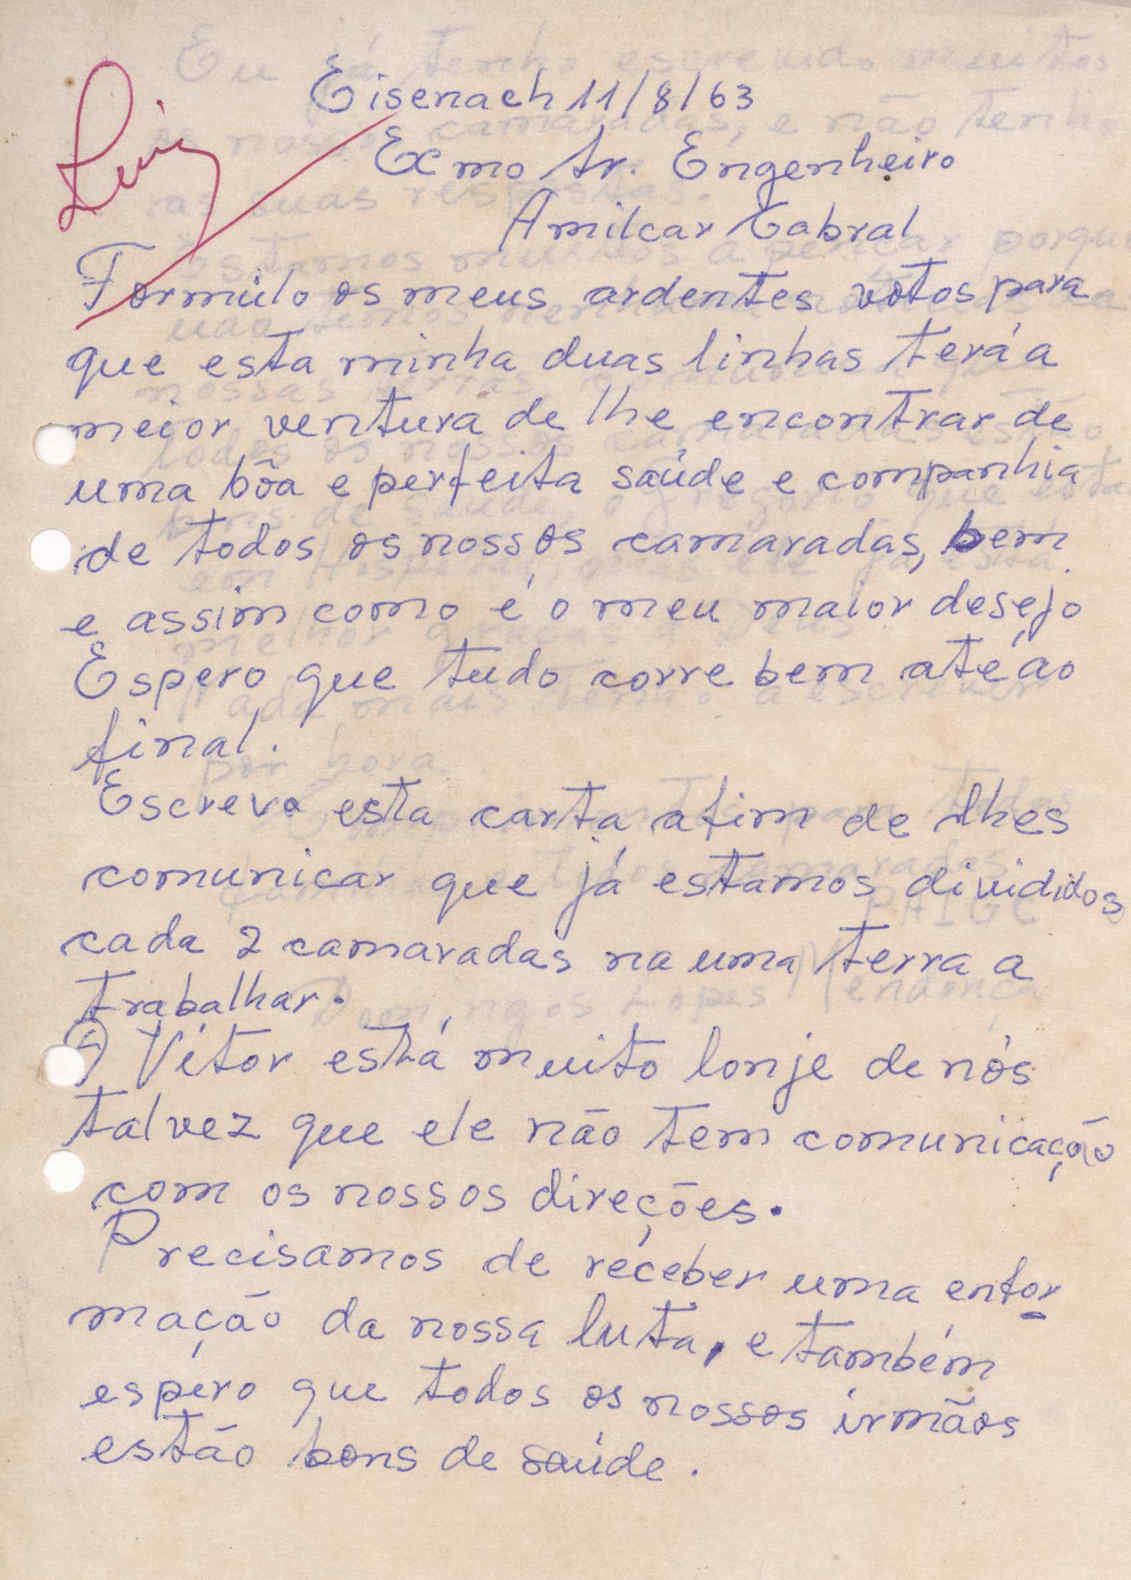 Luiz
Eisenach 11/8/63
Exmo Sr. Engenheiro
Amilcar Cabral
Formulo os meus ardentes votos para
que esta minha duas linhas terá a
meior ventura de lhe encontrar de
uma bôa e perfeita saúde e companhia
de todos os nossos camaradas, bem
e assim como é o meu maior desejo
Espero que tudo corre bem até ao
final.
Escrevo esta carta afim de lhes
comunicar que já estamos divididos
cada 2 camaradas na uma terra a
trabalhar.
O Vitor está muito lonje de nós
talvez que ele não tem comunicação
com os nossos direções.
Precisamos de receber uma enfor
mação da nossa luta, e também
espero que todos os nossos irmãos
estão bons de saúde.